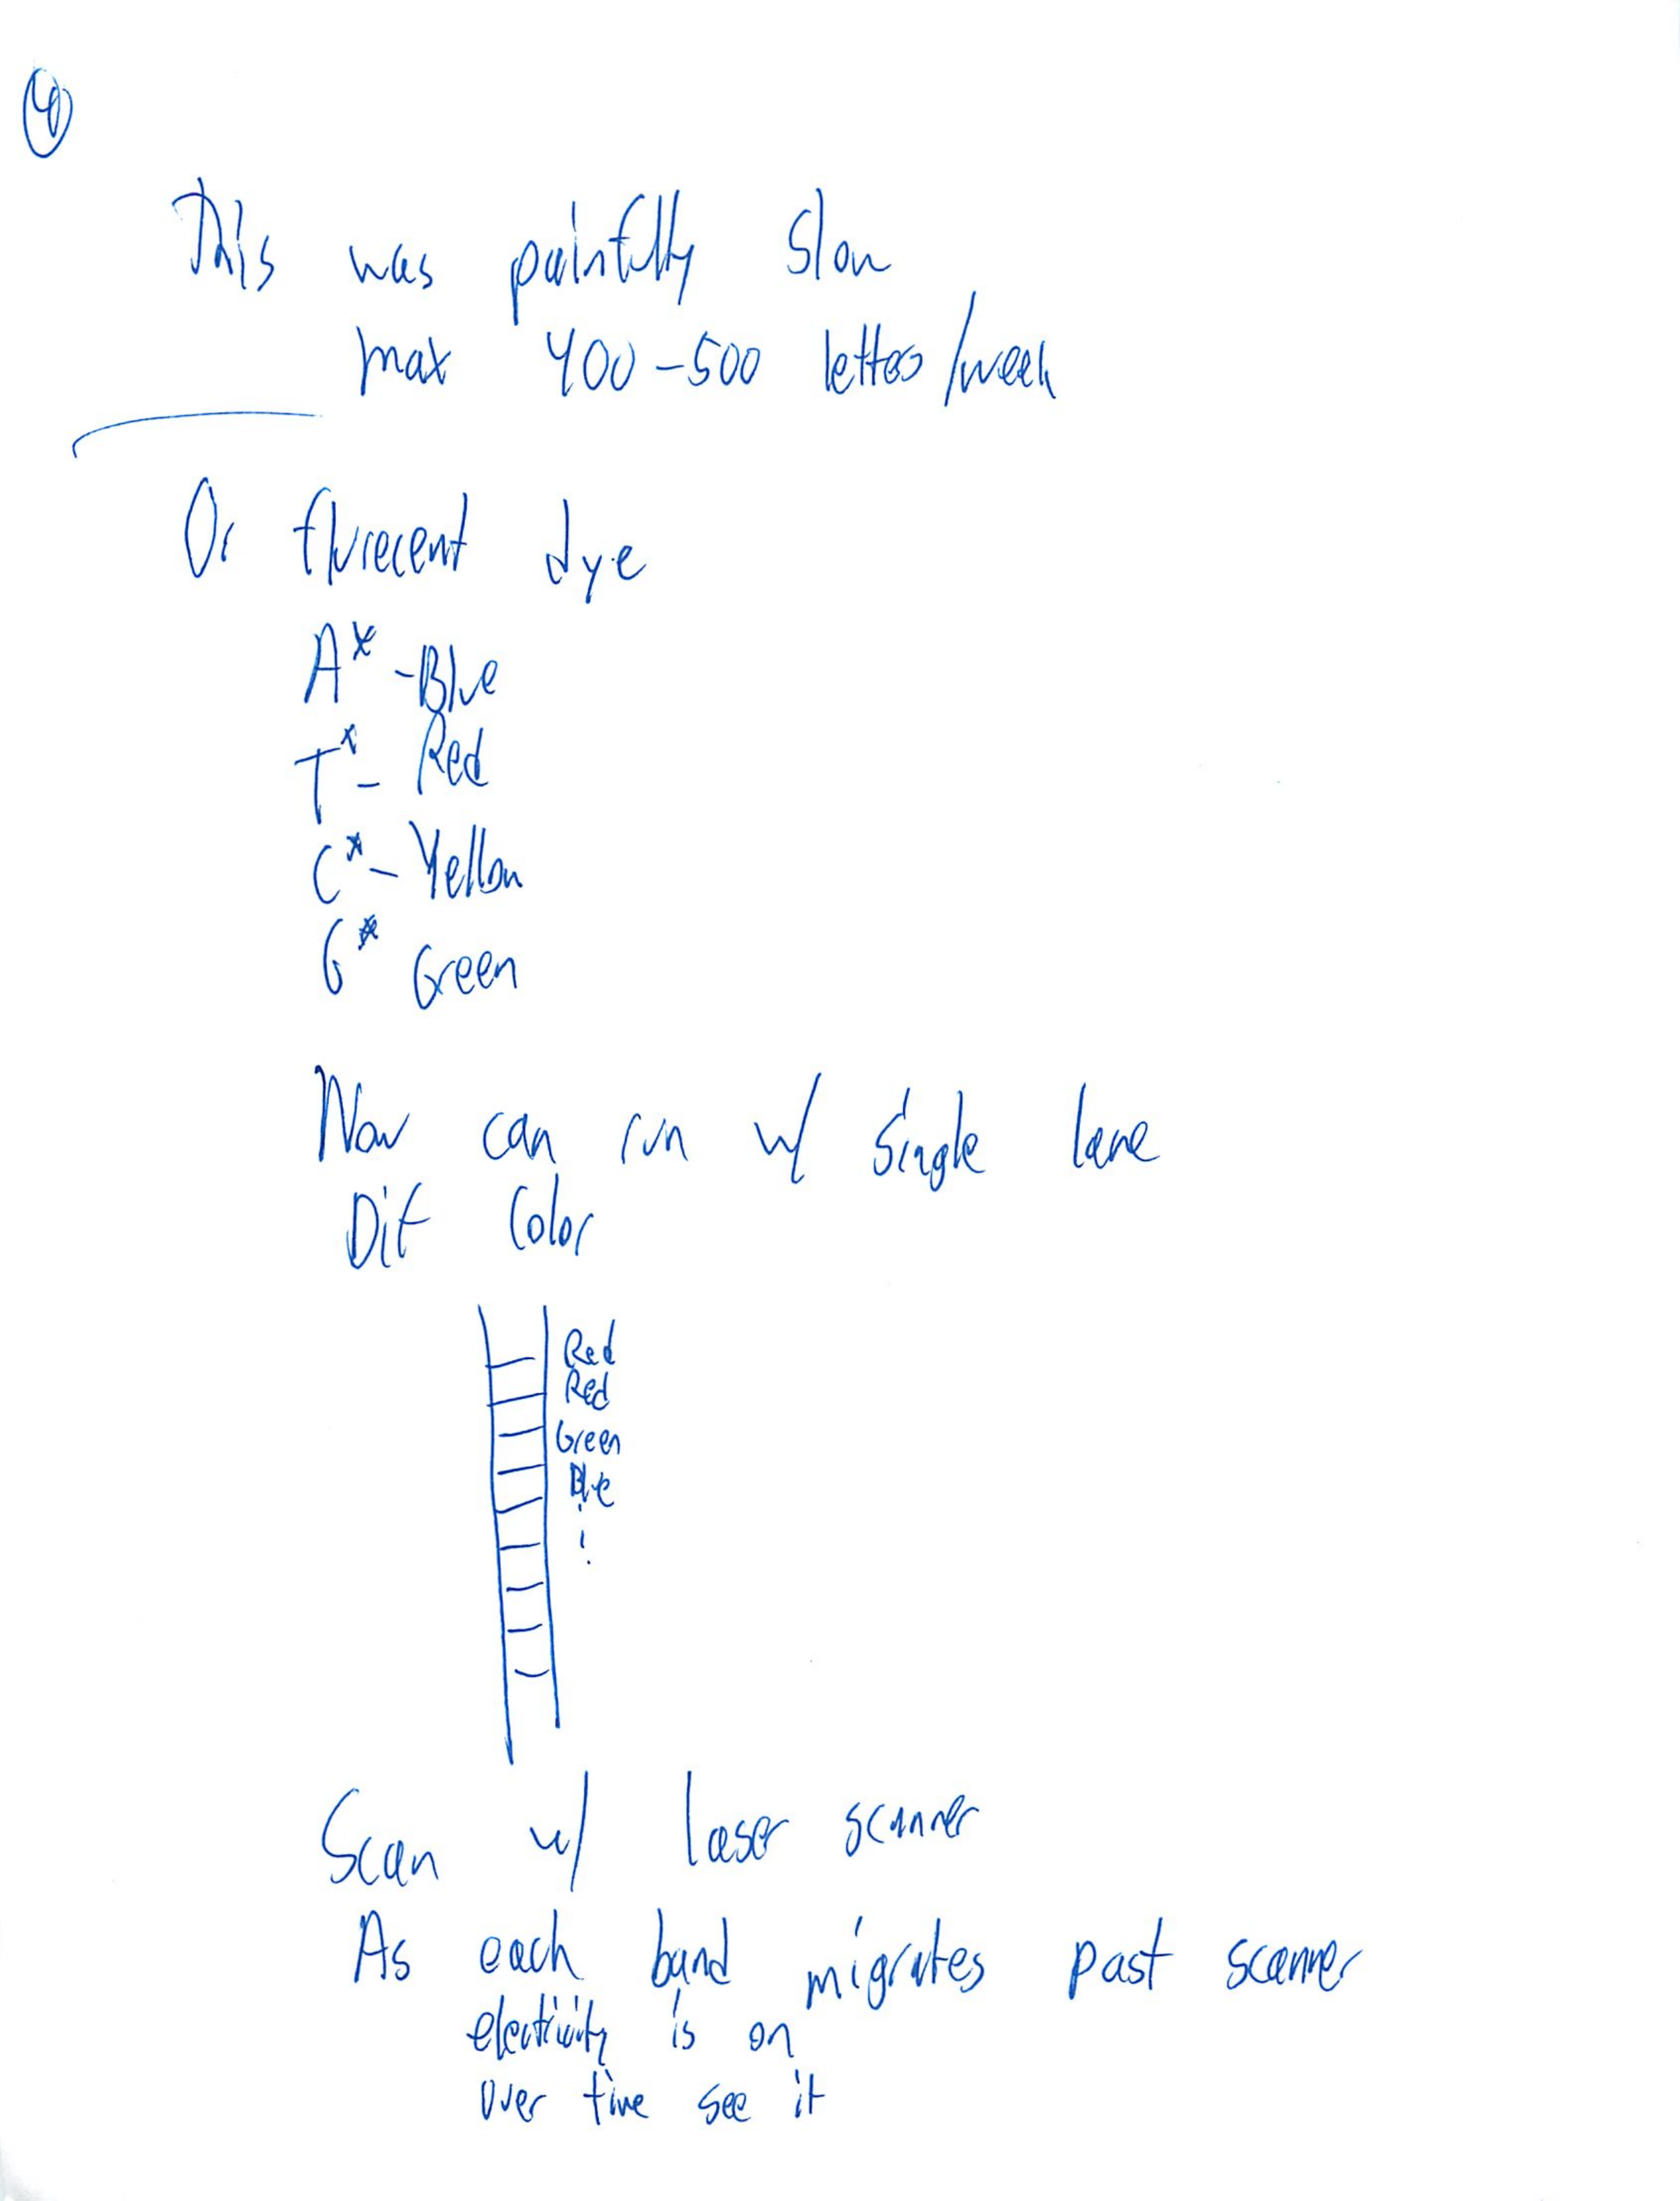 4
This was painfully slow
max 400-500 letters/week
Or flurecent dye
A* - Blue
T* - Red
C* - Yellow
G* Green
Now can run w/ single lane
Dif Color
Red
Red
Green
Blue
Scan w/ laser scanner
As each band migrates past scanner
electricity is on
over time see it